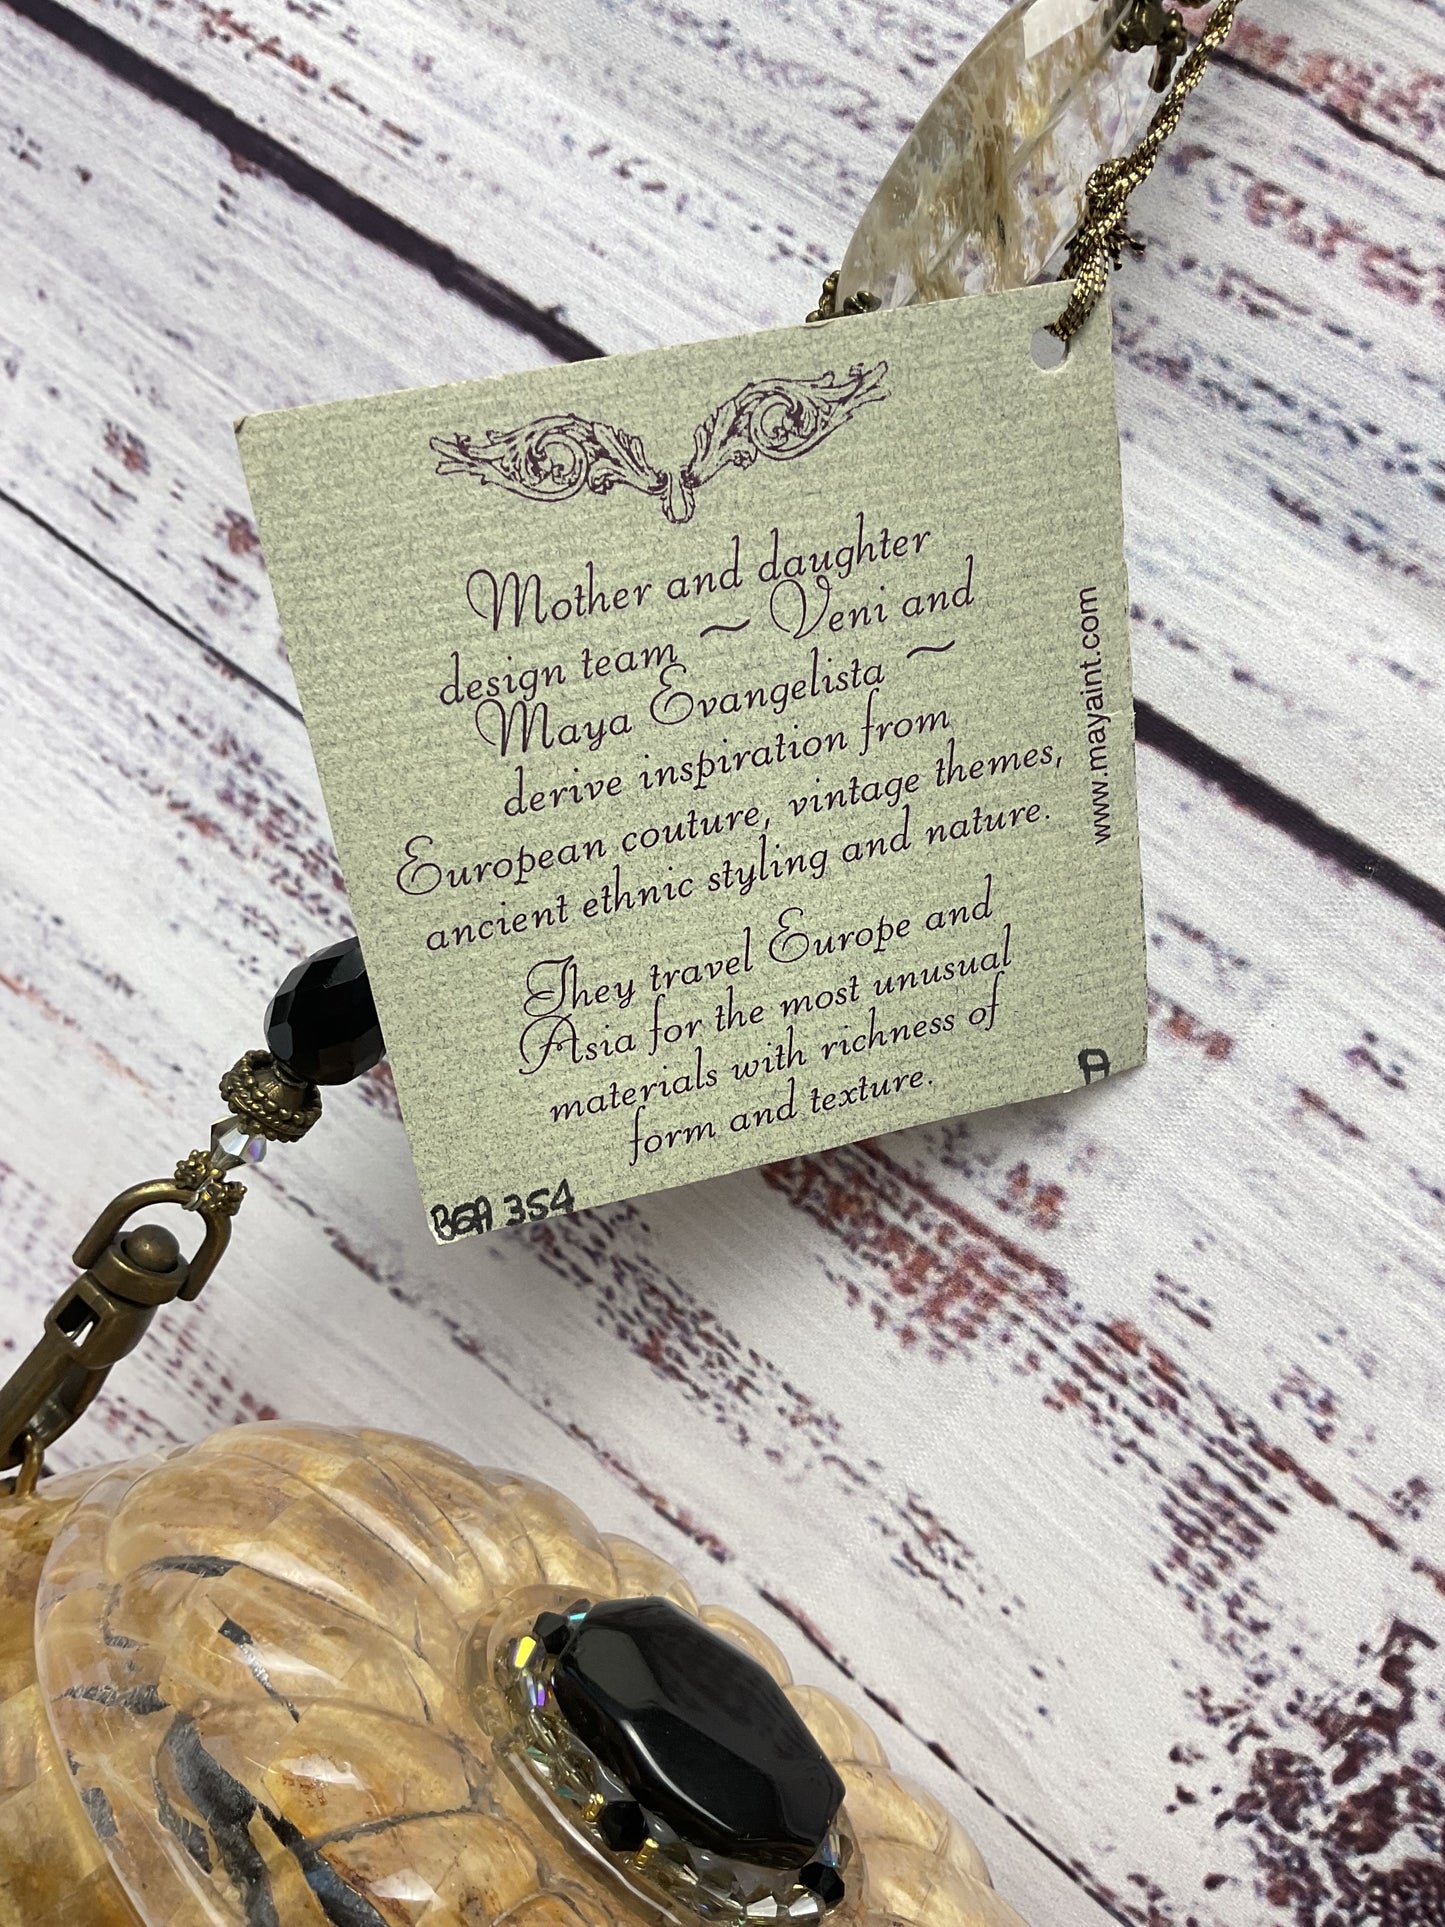 Mother and daughter
design team ~ Veni and
Maya Evangelista ~
derive inspiration from
European couture, vintage themes,
ancient ethnic styling and nature.
They travel Europe and
Asia for the most unusual
materials with richness of
form and texture.
www.mayaint.com
A
BGA 354